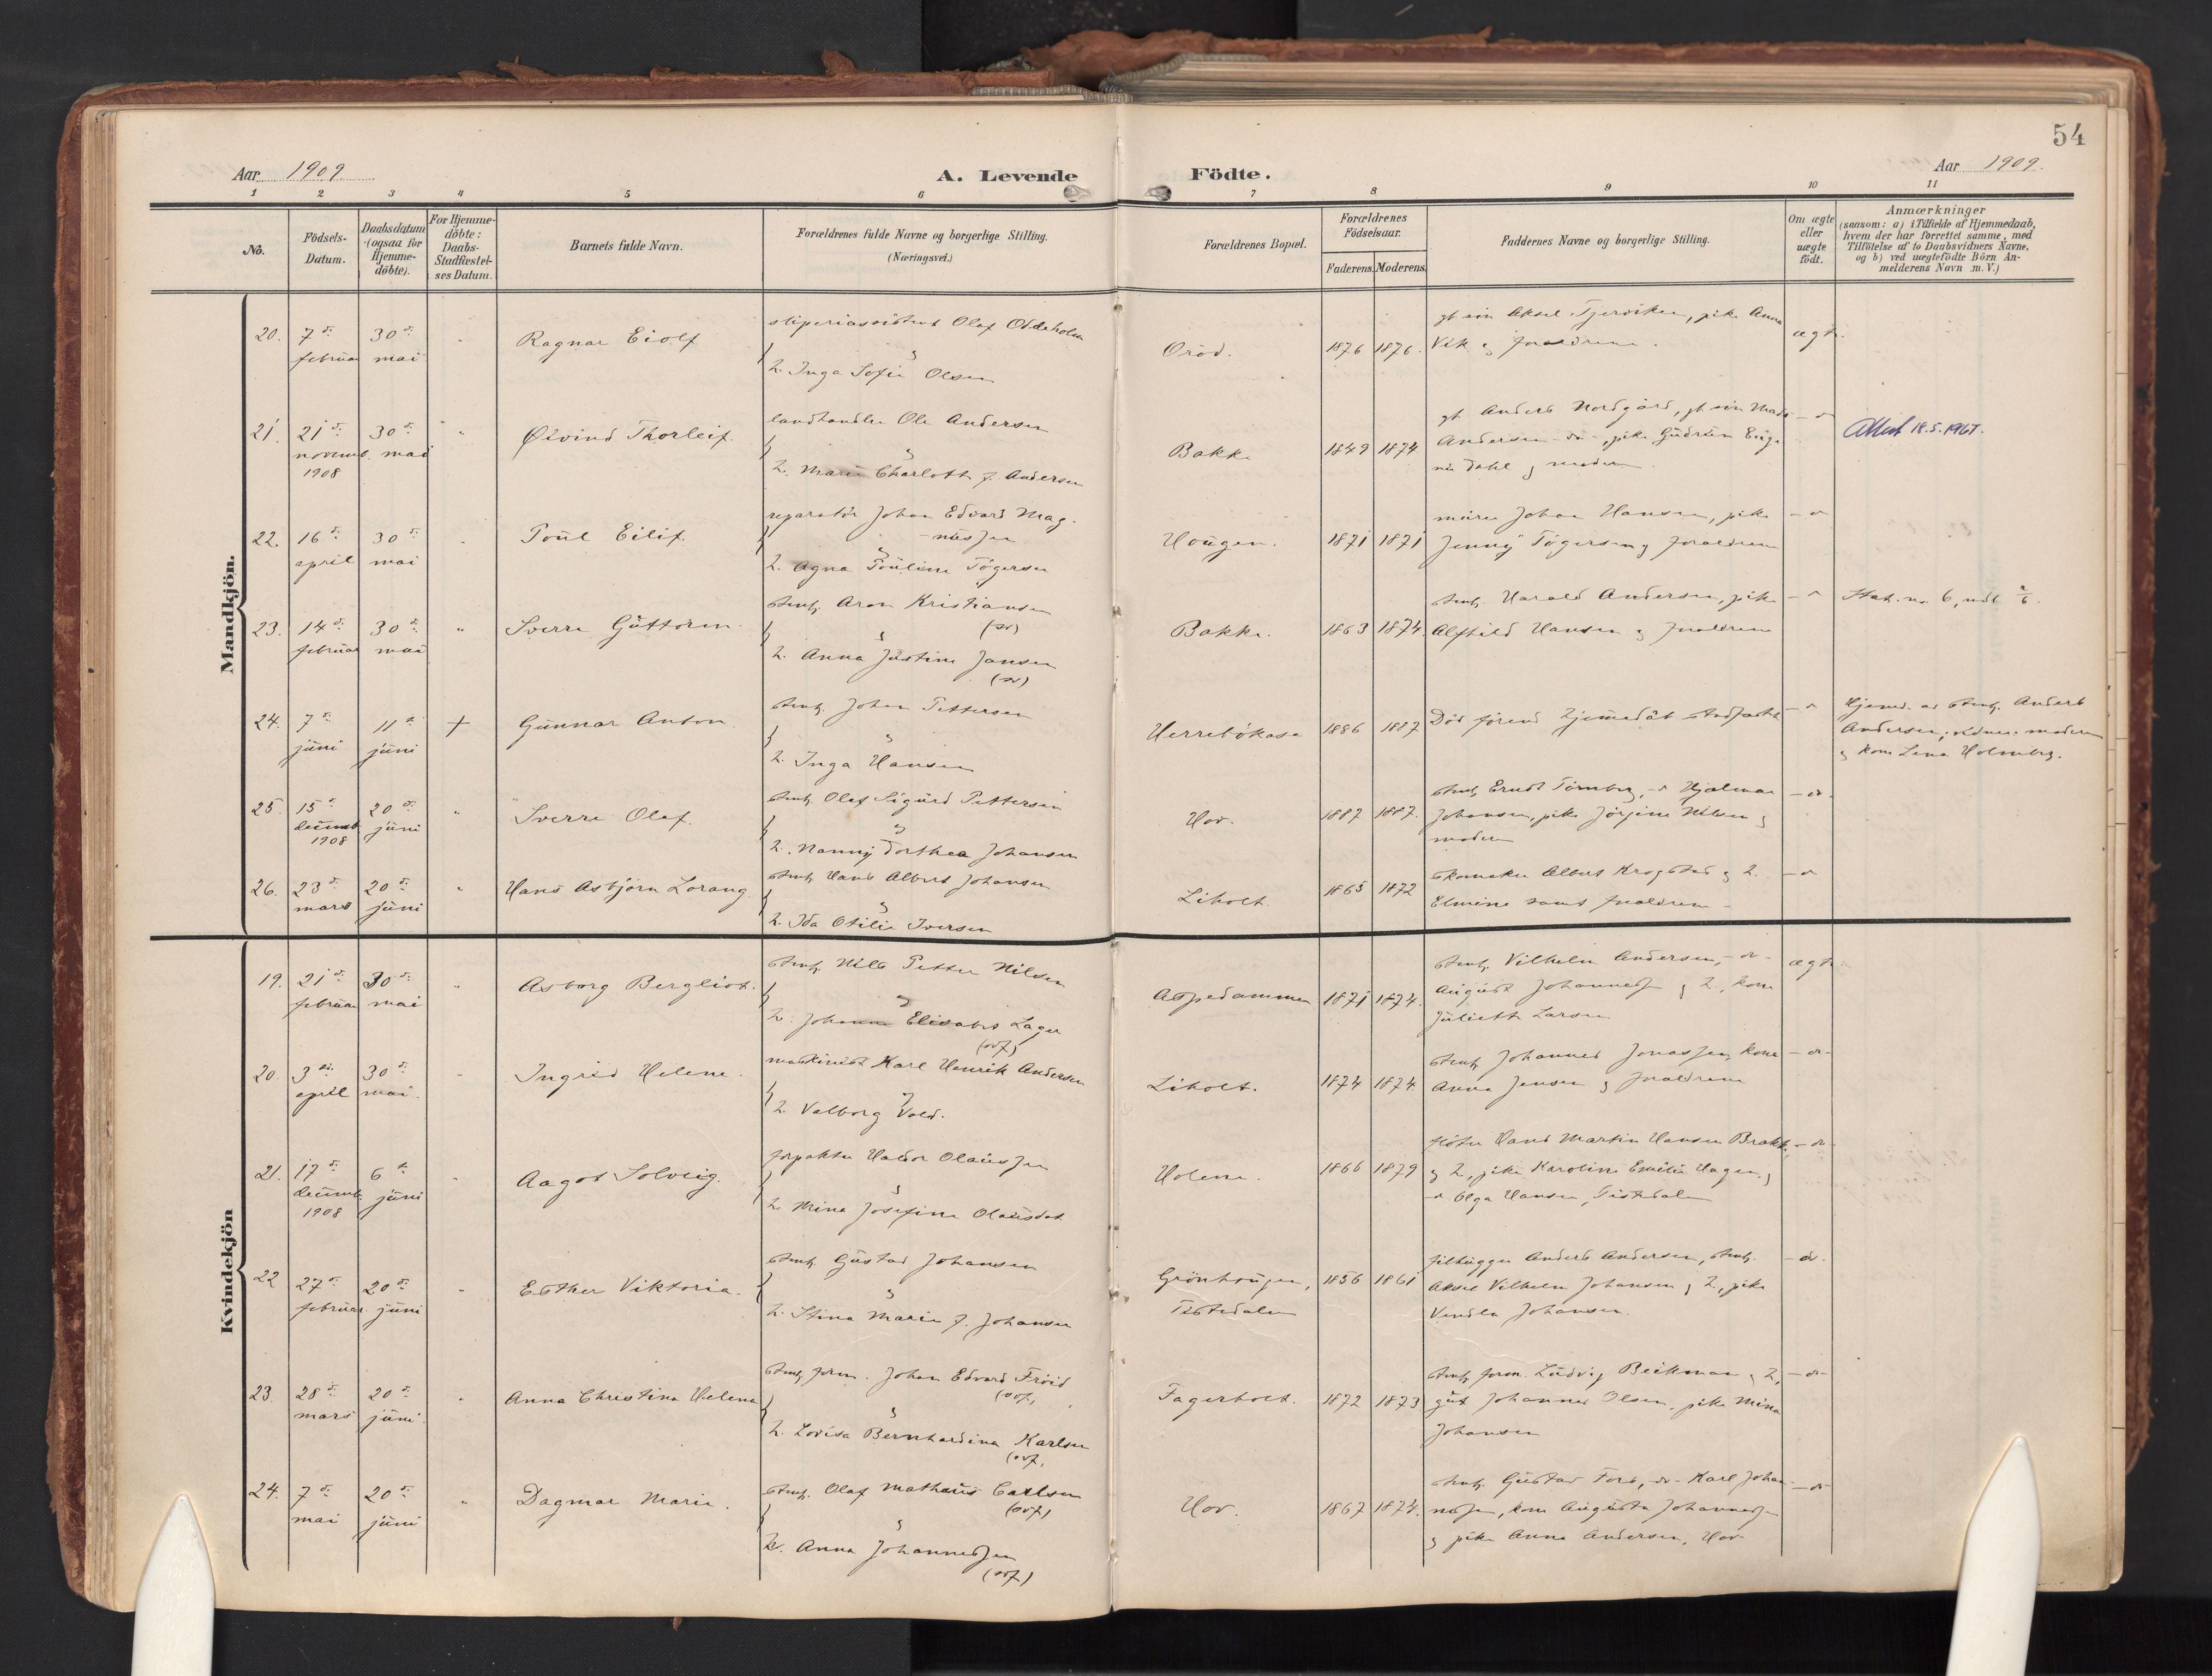 54
Aar 1909.
A. Levende Födte.
Aar 1909.
1 2 3 4 5 6 7 8 9 10 11
No.
Födsels-Datum.
Daabsdatum (ogsaa for Hjemme-döbte).
For Hjemme-döbte: Daabs-Stadfæstel-ses Datum.
Barnets fulde Navn.
Forældrenes fulde Navne og borgerlige Stilling.
(Næringsvei.)
Forældrenes Bopæl.
Forældrenes Födselsaar.
Faderens. Moderens.
Faddernes Navne og borgerlige Stilling.
Om ægte eller uægte født.
Anmærkninger
(saasom: a) i Tilfælde af Hjemmedaab,
hvem der har forrettet samme, med
Tilföielse af to Daabsvidners Navne.
og b) ved uægtefödte Börn An-
melderens Navn m. V.)
Mandkjön.
20. 7de februar 30te mai Ragnar Eiolf
sliperiassistent Olaf Odderholm
&
h. Inga Sofie Olsen
Oröd. 1876 1876.
gt sön Aksel Tjerviken, pike Anna
Vik og forældrene.
ægte.
21. 21de novemb. 1908 30te mai Øivind Thorleif.
landhandler Ole Andersen
&
h. Marie Charlotte f. Andersen
Bakke 1849 1874.
gt Anders Nordgård, gt sön Mads
Andersen -do-, pike Gudrun Euge
nie Dahl og moderen
-do-
Attest 18.5.1967.
22. 16de april 30te mai Poul Eilif.
reparatör Johan Edvard Mag-
nussen
&
h. Agna Pouline Tögersen
Hougen. 1871 1871
murer Johan Hansen, pike
Jenny Tögersen og forældrene
-do-
23. 14de februar 30te mai Sverre Guttorm.
arub. Aron Kristiansen
&
h. Anna Justine Jansen
Bakke. 1863 1874.
Harald Andersen, pike
Alfhild Hansen og forældrene
-do-
Stat. no. 6, udt
24. 7de juni 11te juni + Gunnar Anton.
Johan Pettersen
&
h. Inga Hansen
Herrebökasa 1886 1887
Död förend hjemmedåb stadfæstet
-do-
Hjemd. av Anders
Andersen; vidner: moderen
og kone Lena Holmberg.
25. 15de decemb. 1908 20de juni Sverre Olaf.
Olaf Sigurd Pettersen
&
h. Nanny Dorthea Johansen
Hov. 1887 1887.
Ernst Törnberg, -do- Hjalmar
Johansen, pike Jörgine Nilsen og
moderen
-do-
26. 23de mars 20de juni Hans Asbjörn Lorang.
Hans Albert Johansen
&
h. Ida Otilie Iversen
Liholt. 1865 1872
skomaker Albert Krogstad og h.
Elmine samt forældrene -
-do-
Kvindekjön
19. 21de februar 30te mai Asborg Bergliot.
Nils Petter Nilsen
&
h. Johanne Elisabet Lager
Aspedammen 1871 1874.
Vilhelm Andersen, -do-
August Johannessen og h., kone
Juliette Larsen
ægte
20. 3die april 30te mai. Ingrid Helene.
maskinist Karl Henrik Andersen
&
h. Valborg Vold.
Liholt. 1874 1874.
Johannes Jonassen, kone
Anna Jensen og forældrene
-do-
21. 17de decemb. 1908 6te juni Aagot Solveig.
forpakter Haldor Olaussen
&
h. Mina Josefine Olausdat.
Holene. 1866 1879
flöter Hans Martin Hansen Brække
og h., pike Karoline Emilie Hagen og
-do- Olga Hansen, Tistedalen
-do-
22 27de februar. 20de juni Esther Viktoria.
Gustav Johansen
&
h. Stina Marie f. Johansen
Grönhougen,
Tistedalen 1856 1861
filhugger Anders Andersen,
Aksel Vilhelm Johansen og h., pike
Vendla Johansen.
-do-
23. 28de mars 20de juni. Anna Christina Helena
form. Johan Edvard Fröid
&
h. Lovisa Bernhardina Karlsen
Fagerholt. 1872 1873
form. Ludvig Beckman og h.,
gut Johannes Olsen, pike Mina
Johansen
-do-
24. 7de mai 20de juni Dagmar Marie.
Olaf Mathæus Carlsen
&
h. Anna Johannessen
Hov. 1867 1874.
Gustav Fors, -do- Karl Johan-
nessen, kone Augusta Johannessen
og pike Anna Andersen, Hov-
-do-